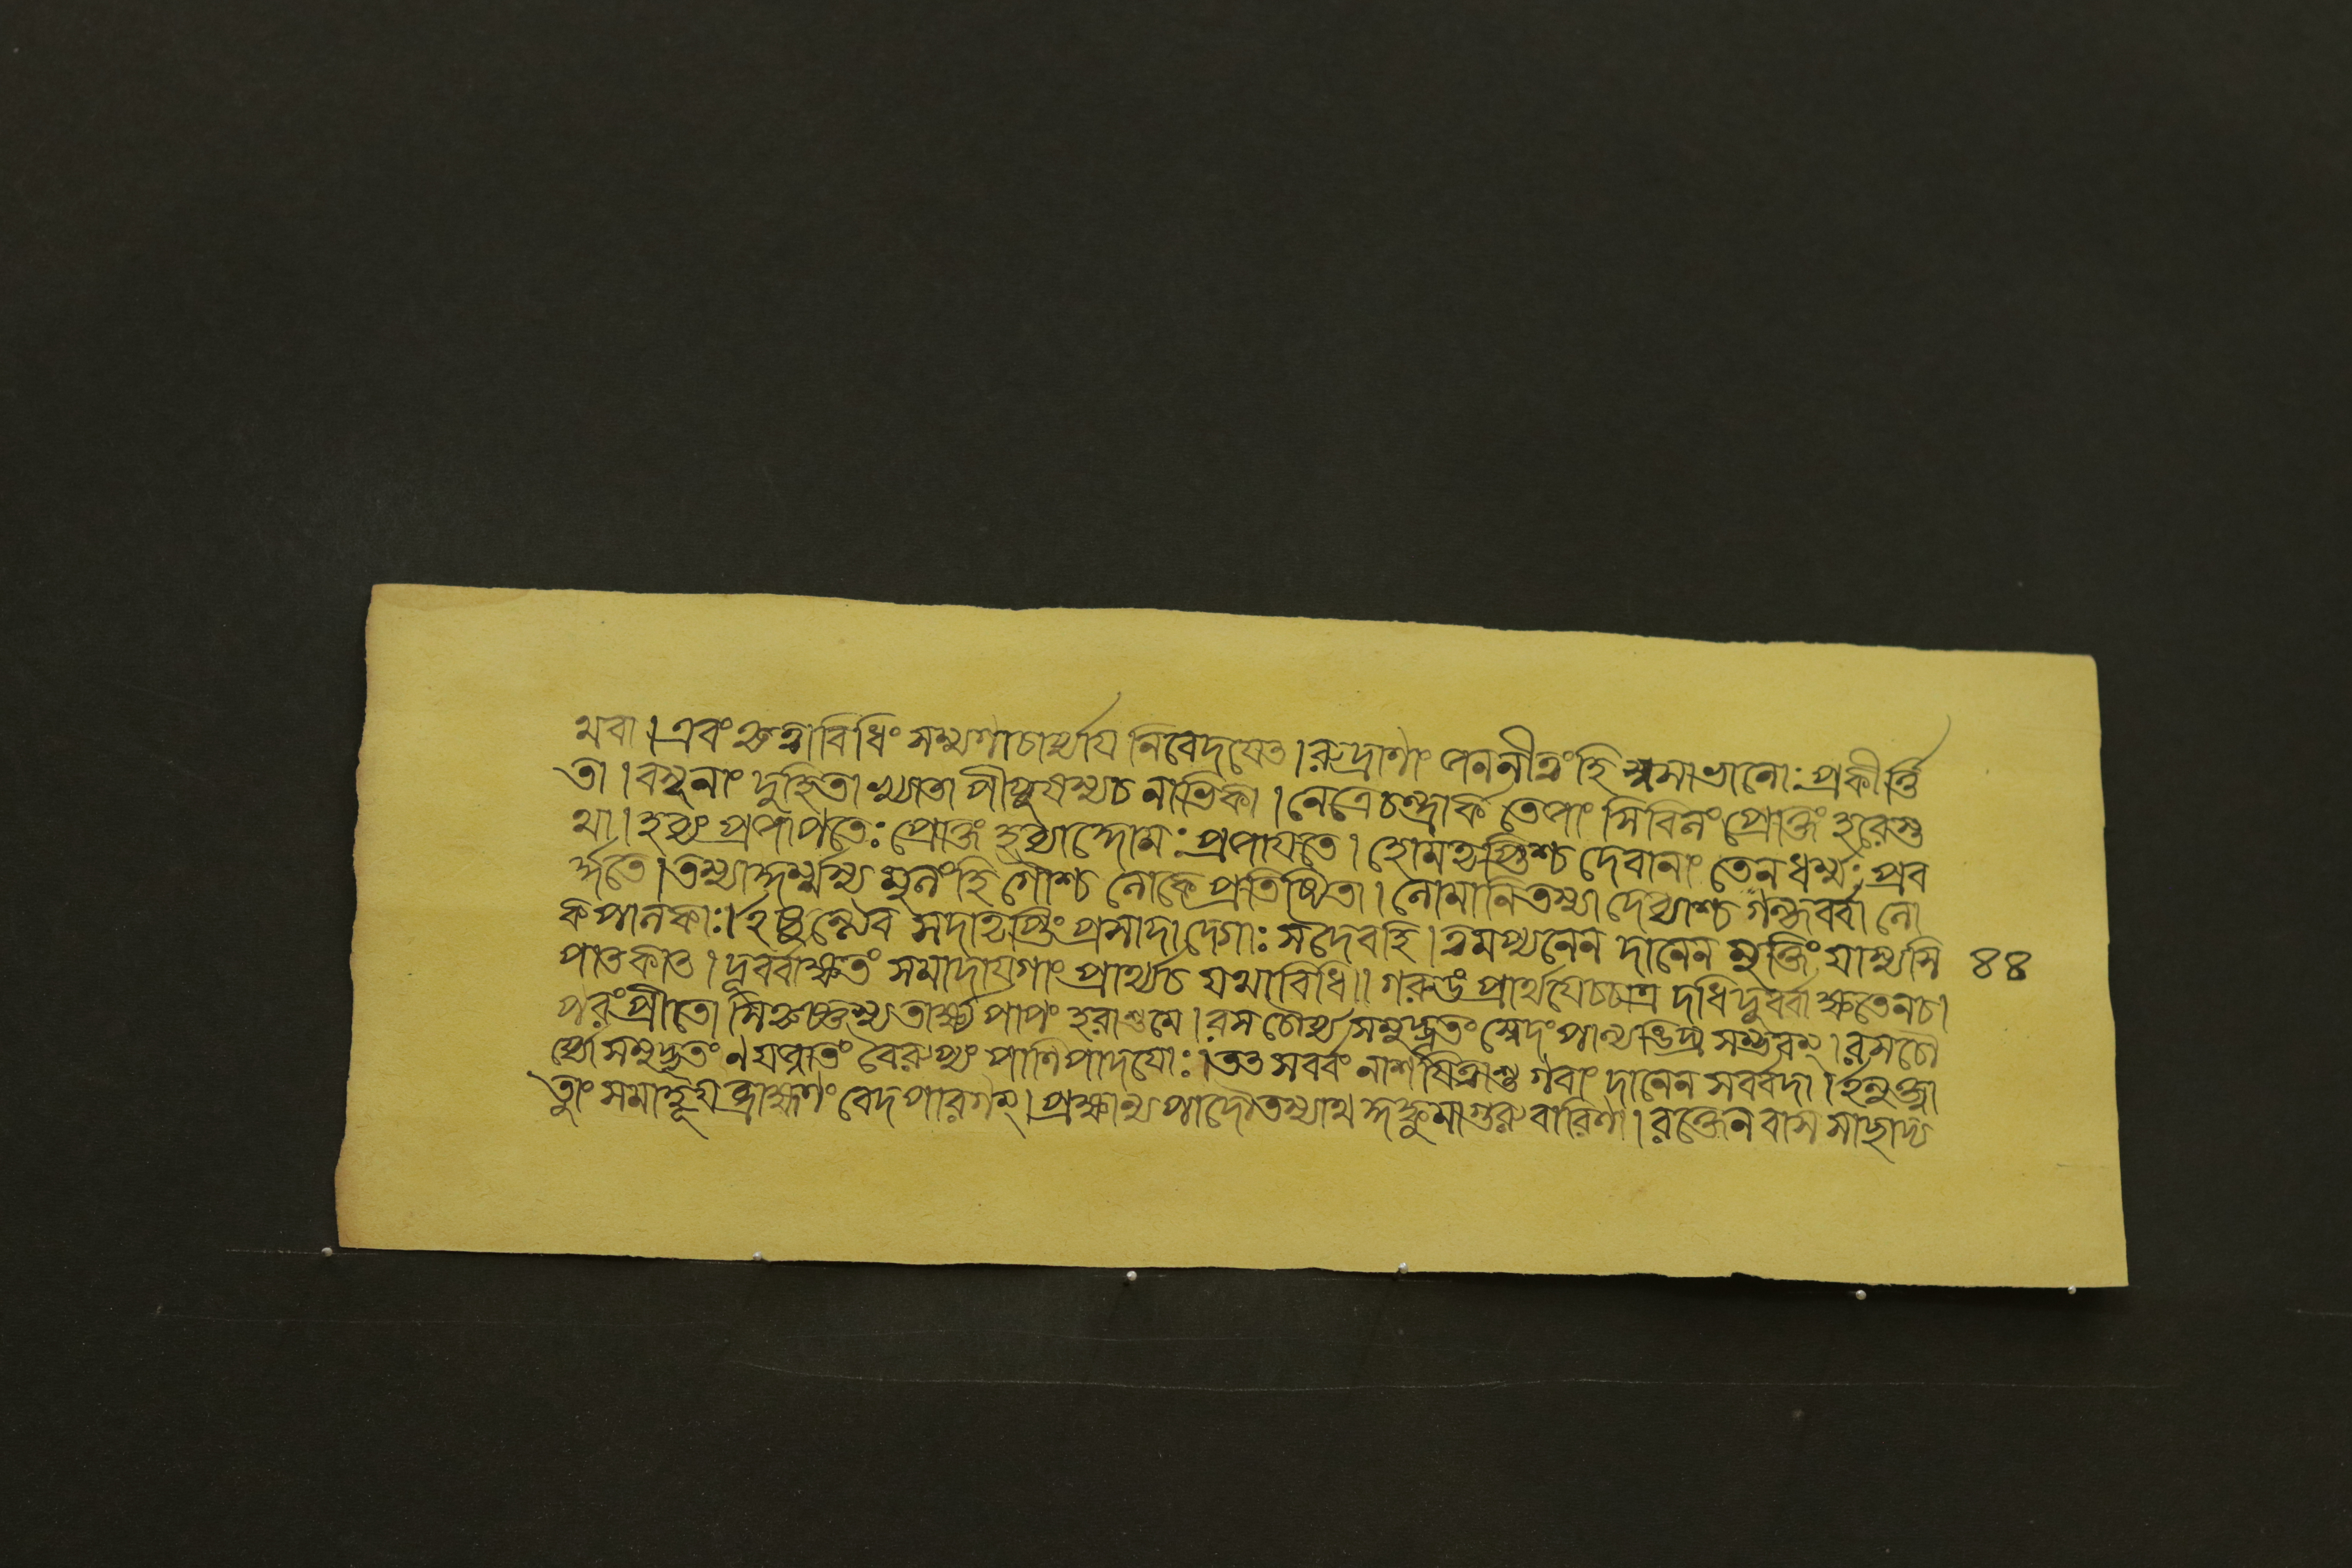 থবা। এবং শ্রুত্বাবিধিং সম্যগাচার্য্যায নিবেদযেত। রুদ্রাণাং জননীত্বংহি স্বসাভানোঃ প্রকীর্ত্তি
তা। বসুনাং দুহিতাখ্যাতা পীযুষস্যচ নাভিকা। নেত্রেচন্দ্রার্ক তেজাং সিবিলং প্রোক্তং হরেশু
থা। হব্যং প্রজাপতেঃ প্রোক্তং হব্যাদ্দোমঃ প্রজাযতে। হোমতৃপ্তিশ্চ দেবানাং তেনধর্ম্মঃ প্রব
র্দ্ধতে। তস্মাদ্ধর্ম্মস্য মুলংহি গৌশ্চ লোকে প্রতিষ্ঠিতা। লোমানিতস্যা দেব্যাশ্চ গন্ধর্ব্বা লো
কপালকাঃ। ইচ্ছন্ত্যেব সদাতৃপ্তিং প্রসাদাদেগাঃ সদৈবহি। ত্বমপ্যনেন দানেন মুক্তিং যাস্যসি ৪৪
পাতকাত। দূর্ব্বাক্ষতং সমাদাযগাং প্রার্থ্যচ যথাবিধি॥ গরুডং প্রার্থযেচ্চাত্র দধিদুর্ব্বাক্ষতেনচ।
পরংপ্রীতো সিঞ্চচ্চস্য তার্ক্ষ্য পাপং হরাশুমে। রস চৌর্য্য সমুদ্ভূতং স্বেদং পাল্যঙিঘ্র সম্ভবম্। রসচৌ
র্য্যে সমুদ্ভূতং ণযজ্ঞাতং বৈরুপ্যং পাণিপাদযোঃ। তত সর্ব্বং নাশযিত্বাশু গবাং দানেন সর্ব্বদা। ইত্যুক্ত্বা
তাং সমাহূয ব্রাহ্মণং বেদপারগম্। প্রক্ষাল্য পাদৌতস্যাথ সকুঙ্কুমাগুরুবারিণা। রক্তেনবাসসাছাদ্য